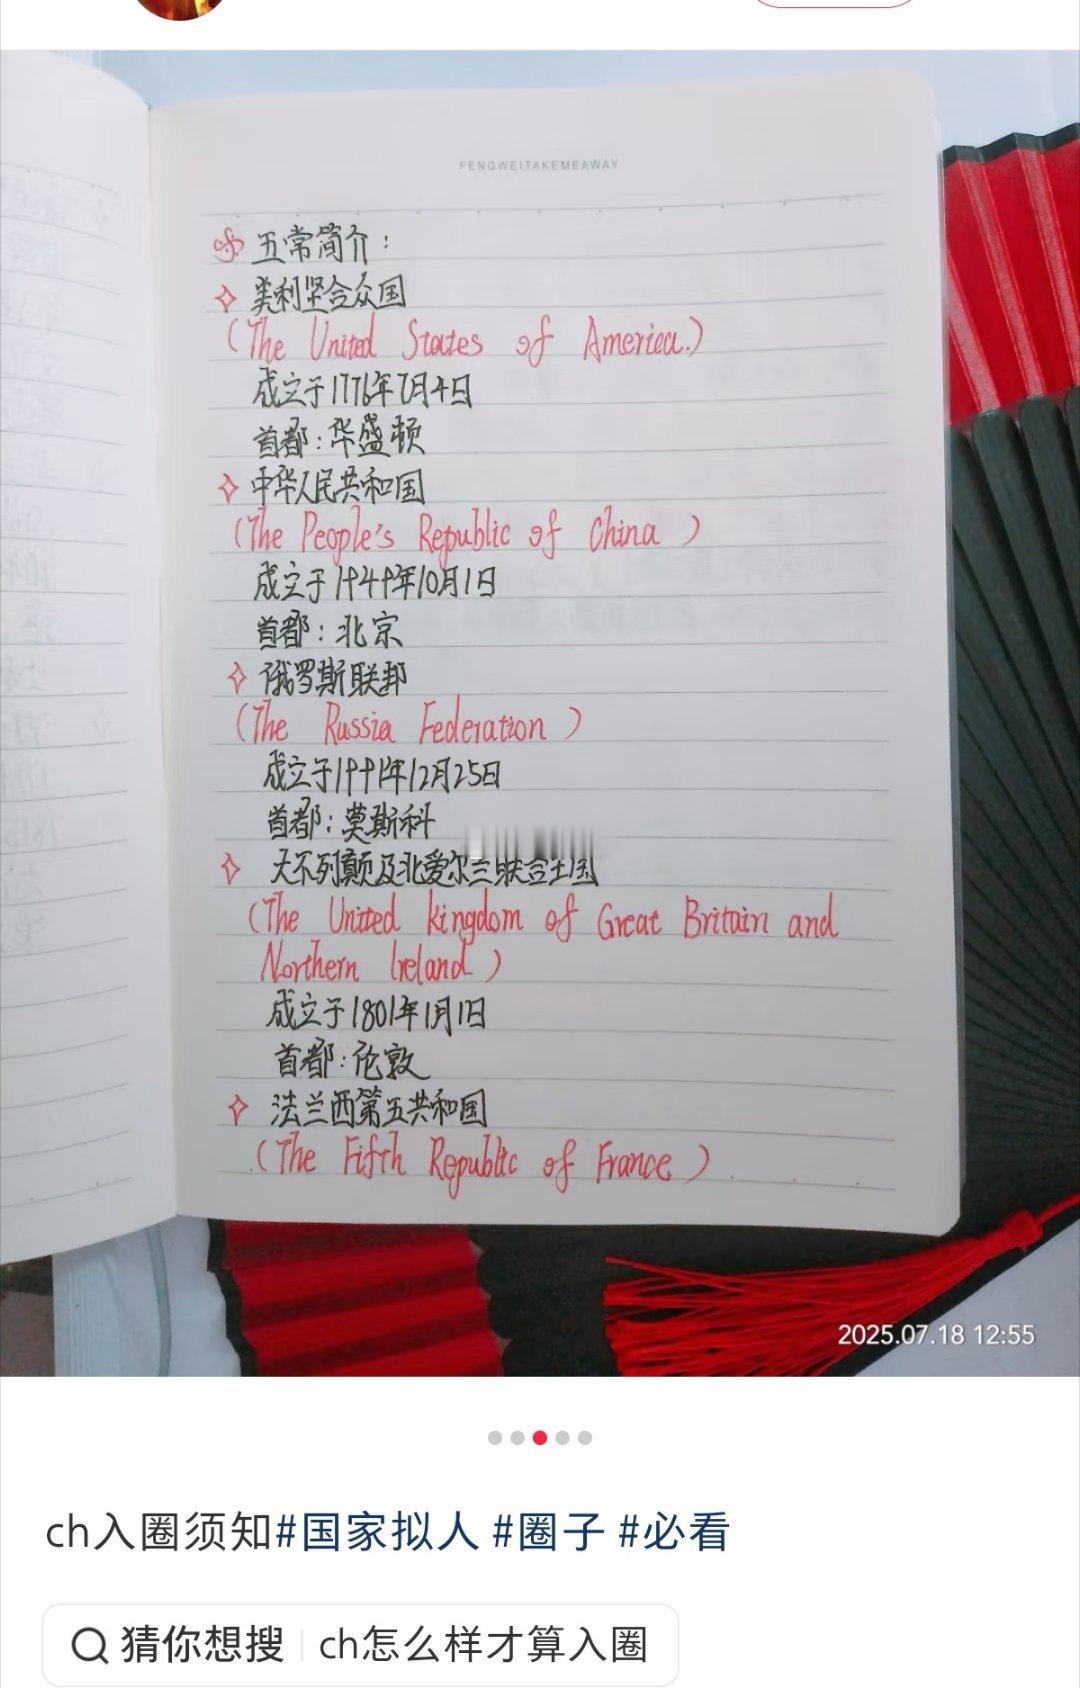 FENGWEITAKEMEAWAY
五常简介：
美利坚合众国
(The United States of America.)
成立于1776年7月4日
首都：华盛顿
中华人民共和国
(The People's Republic of China )
成立于1949年10月1日
首都：北京
俄罗斯联邦
(The Russia Federation )
成立于1991年12月25日
首都：莫斯科
大不列颠及北爱尔兰联合王国
(The United kingdom of Great Britain and
Northern Ireland )
成立于1801年1月1日
首都：伦敦
法兰西第五共和国
(The Fifth Republic of France )
2025.07.18 12:55
ch入圈须知#国家拟人 #圈子 #必看
猜你想搜 | ch怎么样才算入圈